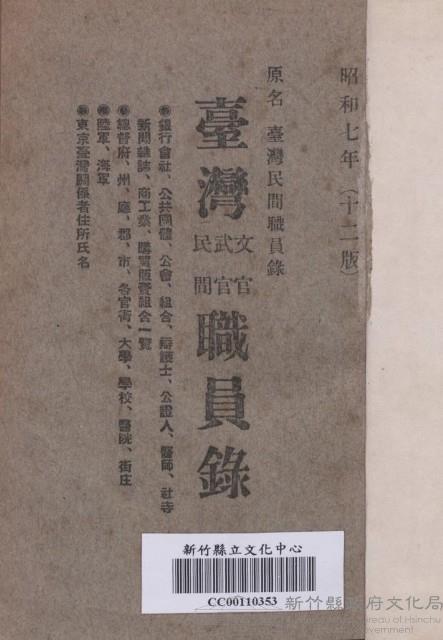 昭和七年（十二版）
原名　臺灣民間職員錄
臺灣
文官
武官
民間
職員錄
銀行會社、公共團體、公會、組合、辯護士、公證人、醫師、社寺
新聞雜誌、商工業、購買販賣組合一覽
總督府、州、廳、郡、市、各官衙、大學、學校、醫院、街庄
陸軍、海軍
東京臺灣關係者住所氏名
新竹縣立文化中心
CC00110353
新竹縣政府文化局
Bureau of Hsinchu
Government